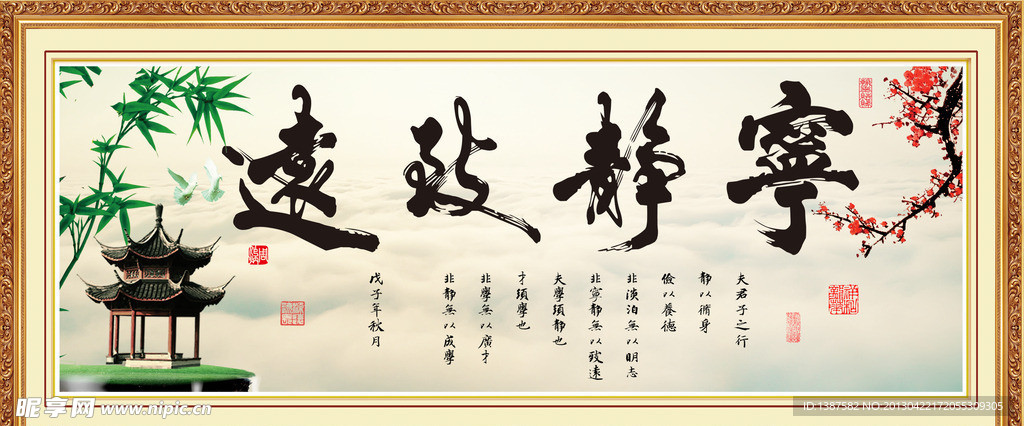 寧靜致遠
夫君子之行
靜以脩身
儉以養德
非淡泊無以明志
非寧靜無以致遠
夫學須靜也
才須學也
非學無以廣才
非靜無以成學
戊子年秋月
昵享网 www.nipic.cn
ID:1387582 NO:20130422172055309305